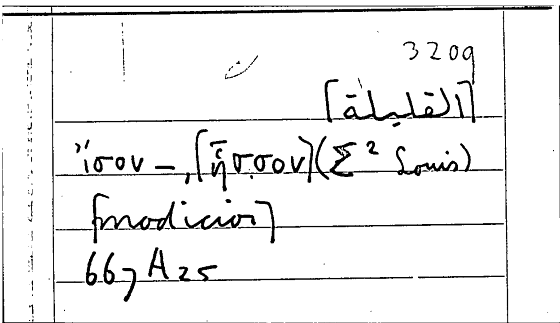 3209
[القليلة]
ἴσον –, [ἧσσον] (Σ² Louis)
[modicior]
667 A 25